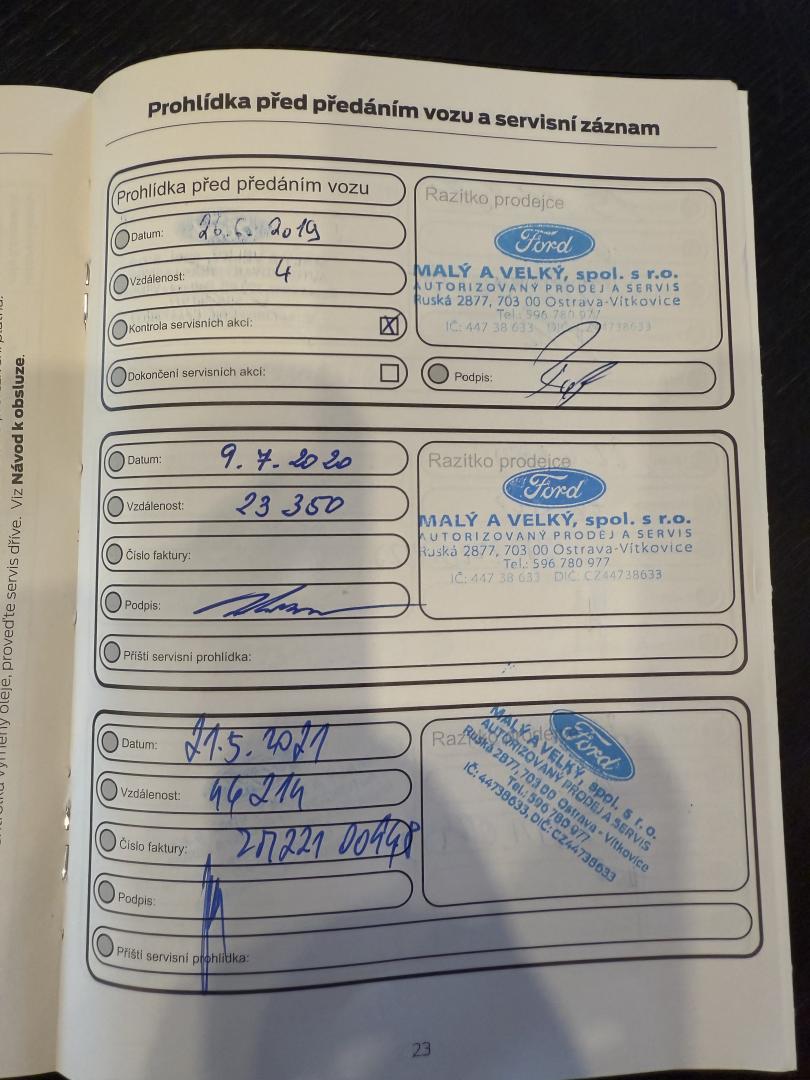 Prohlídka před předáním vozu a servisní záznam
Prohlídka před předáním vozu
Datum: 2019
Vzdálenost: 4
Kontrola servisních akcí: X
Dokončení servisních akcí:
Razítko prodejce
Ford
MALÝ A VELKÝ, spol. s r.o.
AUTORIZOVANÝ PRODEJ A SERVIS
Ruská 2877, 703 00 Ostrava-Vítkovice
Tel.: 596 780 977
IČ: 447 38 633 DIČ: CZ44738633
Podpis:
Datum: 9. 7. 2020
Vzdálenost: 23 350
Číslo faktury:
Podpis:
Příští servisní prohlídka:
Razítko prodejce
Ford
MALÝ A VELKÝ, spol. s r.o.
AUTORIZOVANÝ PRODEJ A SERVIS
Ruská 2877, 703 00 Ostrava-Vítkovice
Tel.: 596 780 977
IČ: 447 38 633 DIČ: CZ44738633
Datum: 21.5. 2021
Vzdálenost: 46 214
Číslo faktury:
Podpis:
Příští servisní prohlídka:
Razítko prodejce
Ford
MALÝ A VELKÝ, spol. s r. o.
AUTORIZOVANÝ PRODEJ A SERVIS
Ruská 2877, 703 00 Ostrava - Vítkovice
Tel.: 596 780 977
IČ: 44738633, DIČ: CZ44738633
23
výměny oleje, proveďte servis dříve. Viz Návod k obsluze.